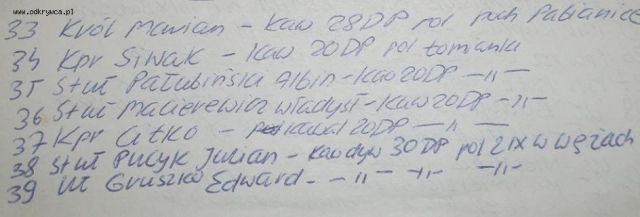 www.odkrywca.pl
33 Król Marian - kaw 28DP pol pod Pabianice
34 Kpr Siwak - kaw 20DP pol Łomianki
35 Stuł Pałubiński Albin - kaw 20DP -"-
36 Stuł Macierewicz Władysł - kaw 20DP -"-
37 Kpr Citko - kawal 20DP -"-
38 Stuł Pucyk Julian - kaw dyw 30DP pol 2IX w Wężach
39 Uł Gruszko Edward - -"- -"- -"-